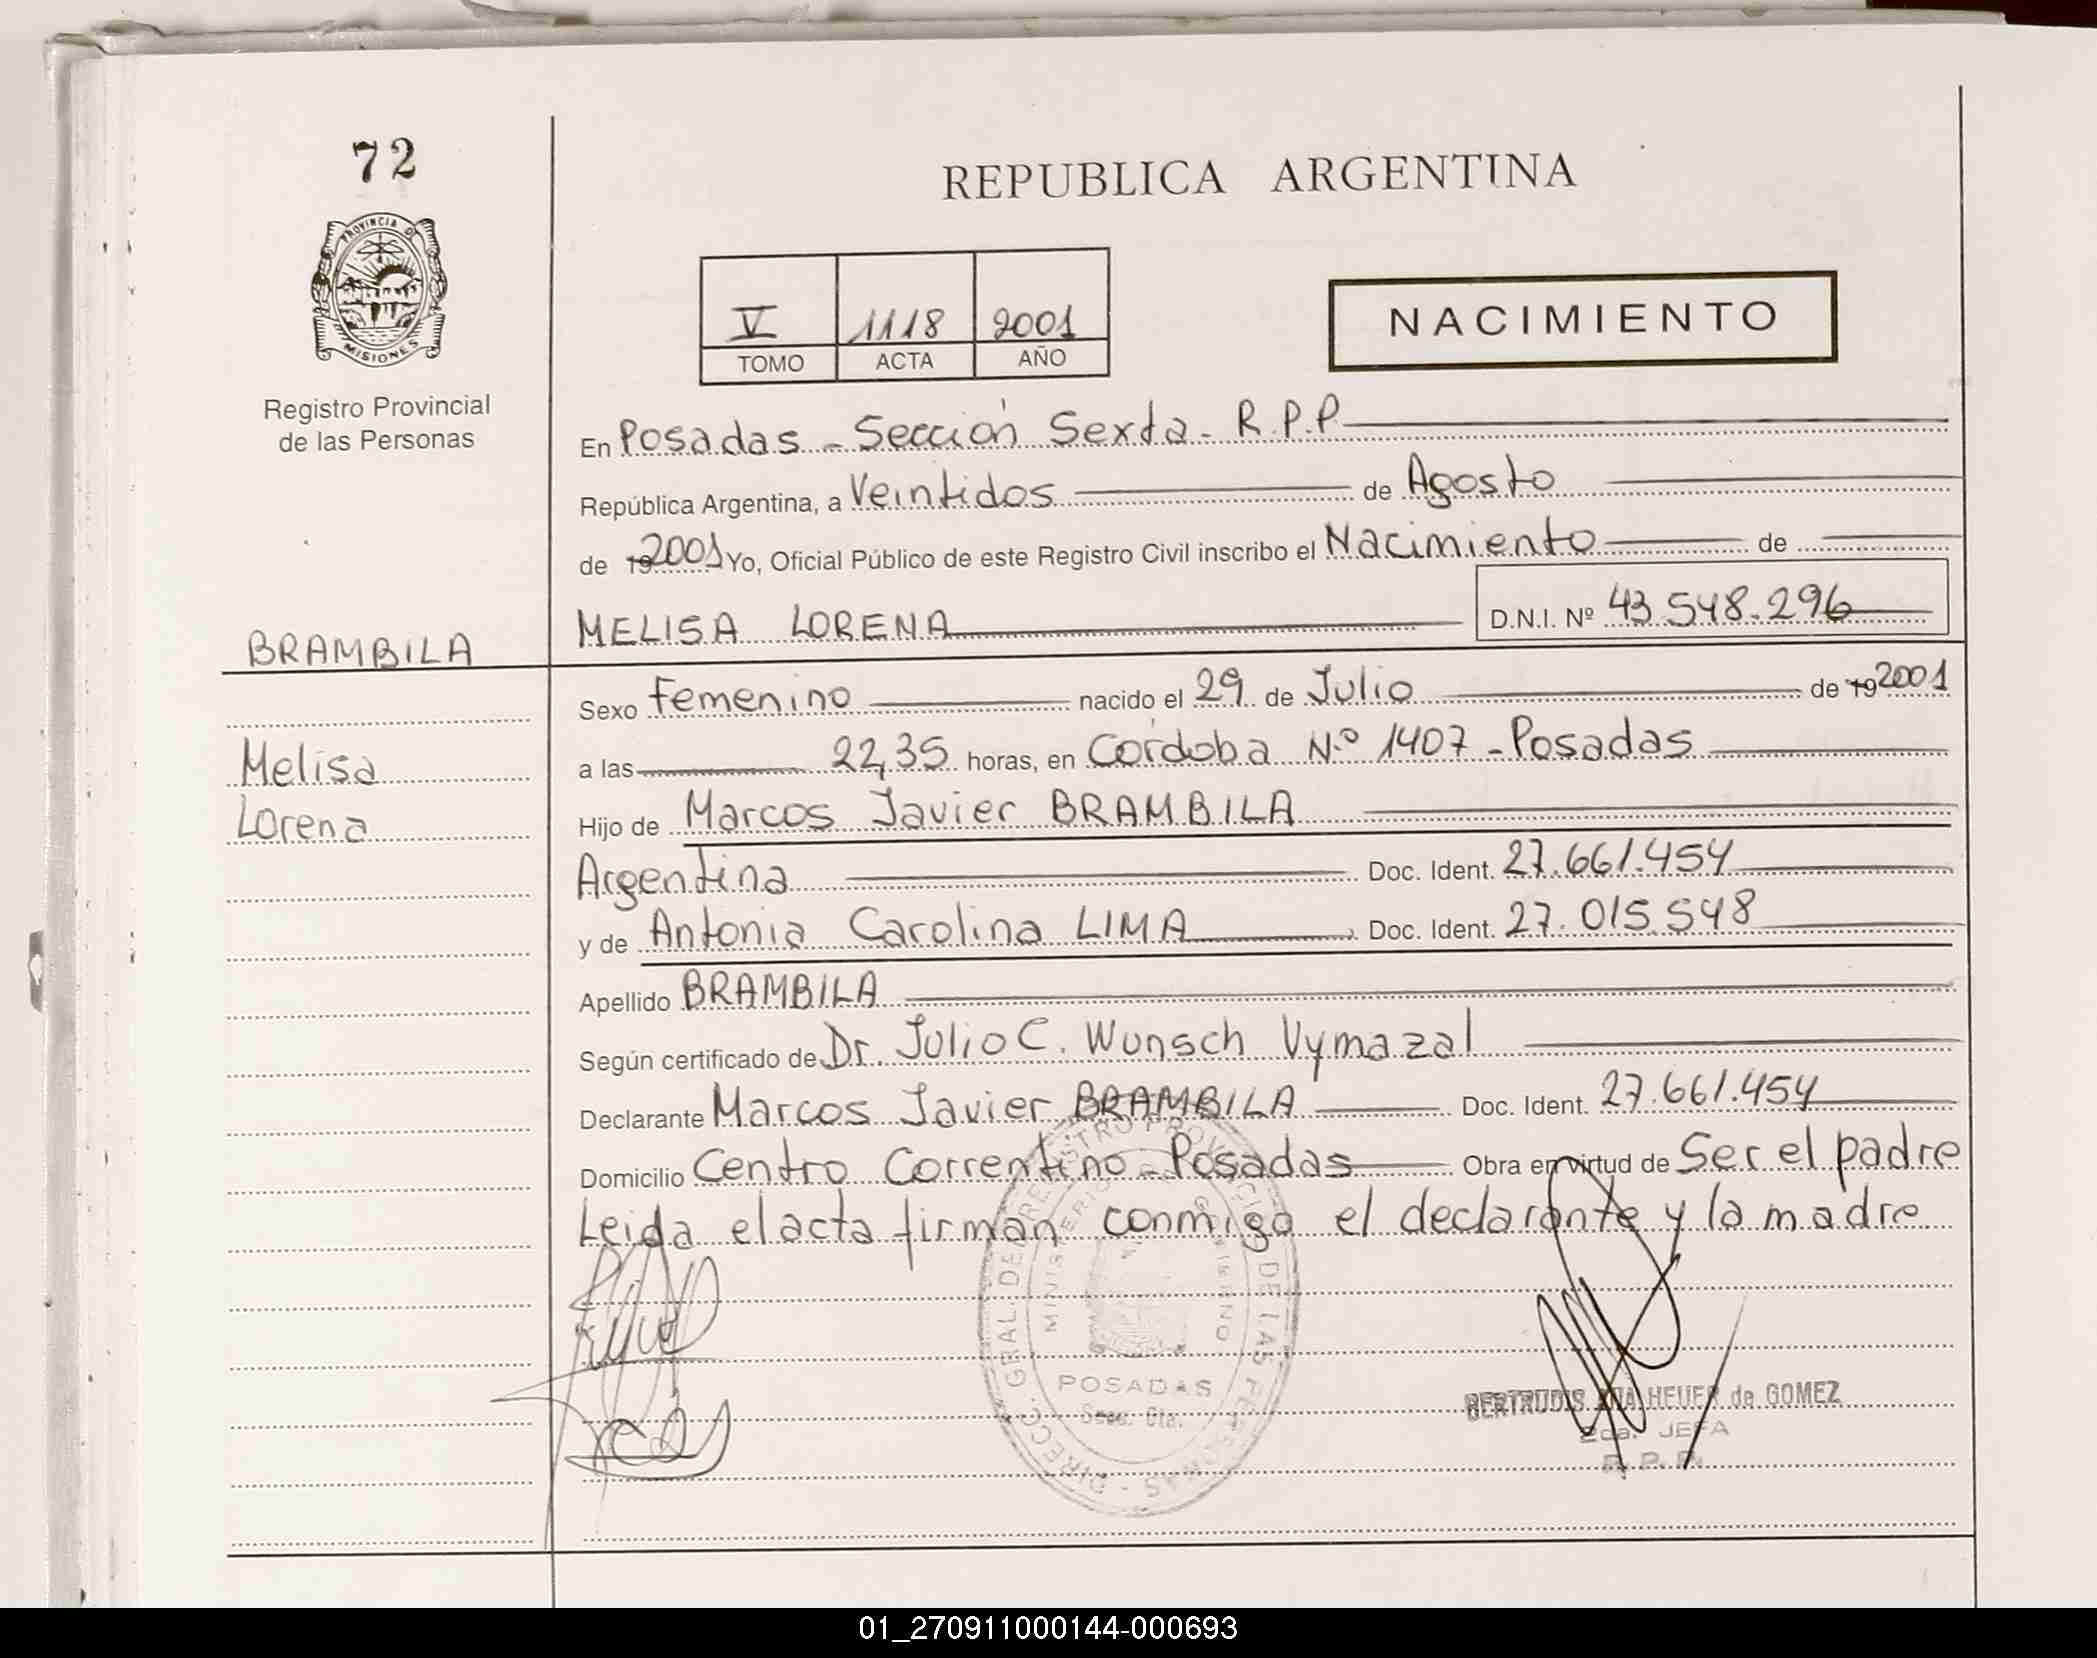 72
PROVINCIA D
MISIONES
Registro Provincial
de las Personas
BRAMBILA
Melisa
Lorena
REPUBLICA ARGENTINA
V 1118 2001
TOMO ACTA AÑO
NACIMIENTO
En Posadas - Sección Sexta - R.P.P
República Argentina, a Veintidos de Agosto
de 19 2001 Yo, Oficial Público de este Registro Civil inscribo el Nacimiento de
MELISA LORENA D.N.I. Nº 43.548.296
Sexo Femenino nacido el 29 de Julio de 19 2001
a las 22,35 horas, en Córdoba N.º 1407 - Posadas
Hijo de Marcos Javier BRAMBILA
Argentina Doc. Ident. 27.661.454
y de Antonia Carolina LIMA Doc. Ident. 27.015.548
Apellido BRAMBILA
Según certificado de Dr. Julio C. Wunsch Vymazal
Declarante Marcos Javier BRAMBILA Doc. Ident. 27.661.454
Domicilio Centro Correntino - Posadas Obra en virtud de Ser el padre
Leida el acta firman conmigo el declarante y la madre
DIRECC. GRAL. DE REGISTRO PROVINCIAL DE LAS PERSONAS
MINISTERIO GOBIERNO
POSADAS
Secc. 6ta.
GERTRUDIS ANA HEUER de GOMEZ
2da. JEFA
R. P. P.
01_270911000144-000693